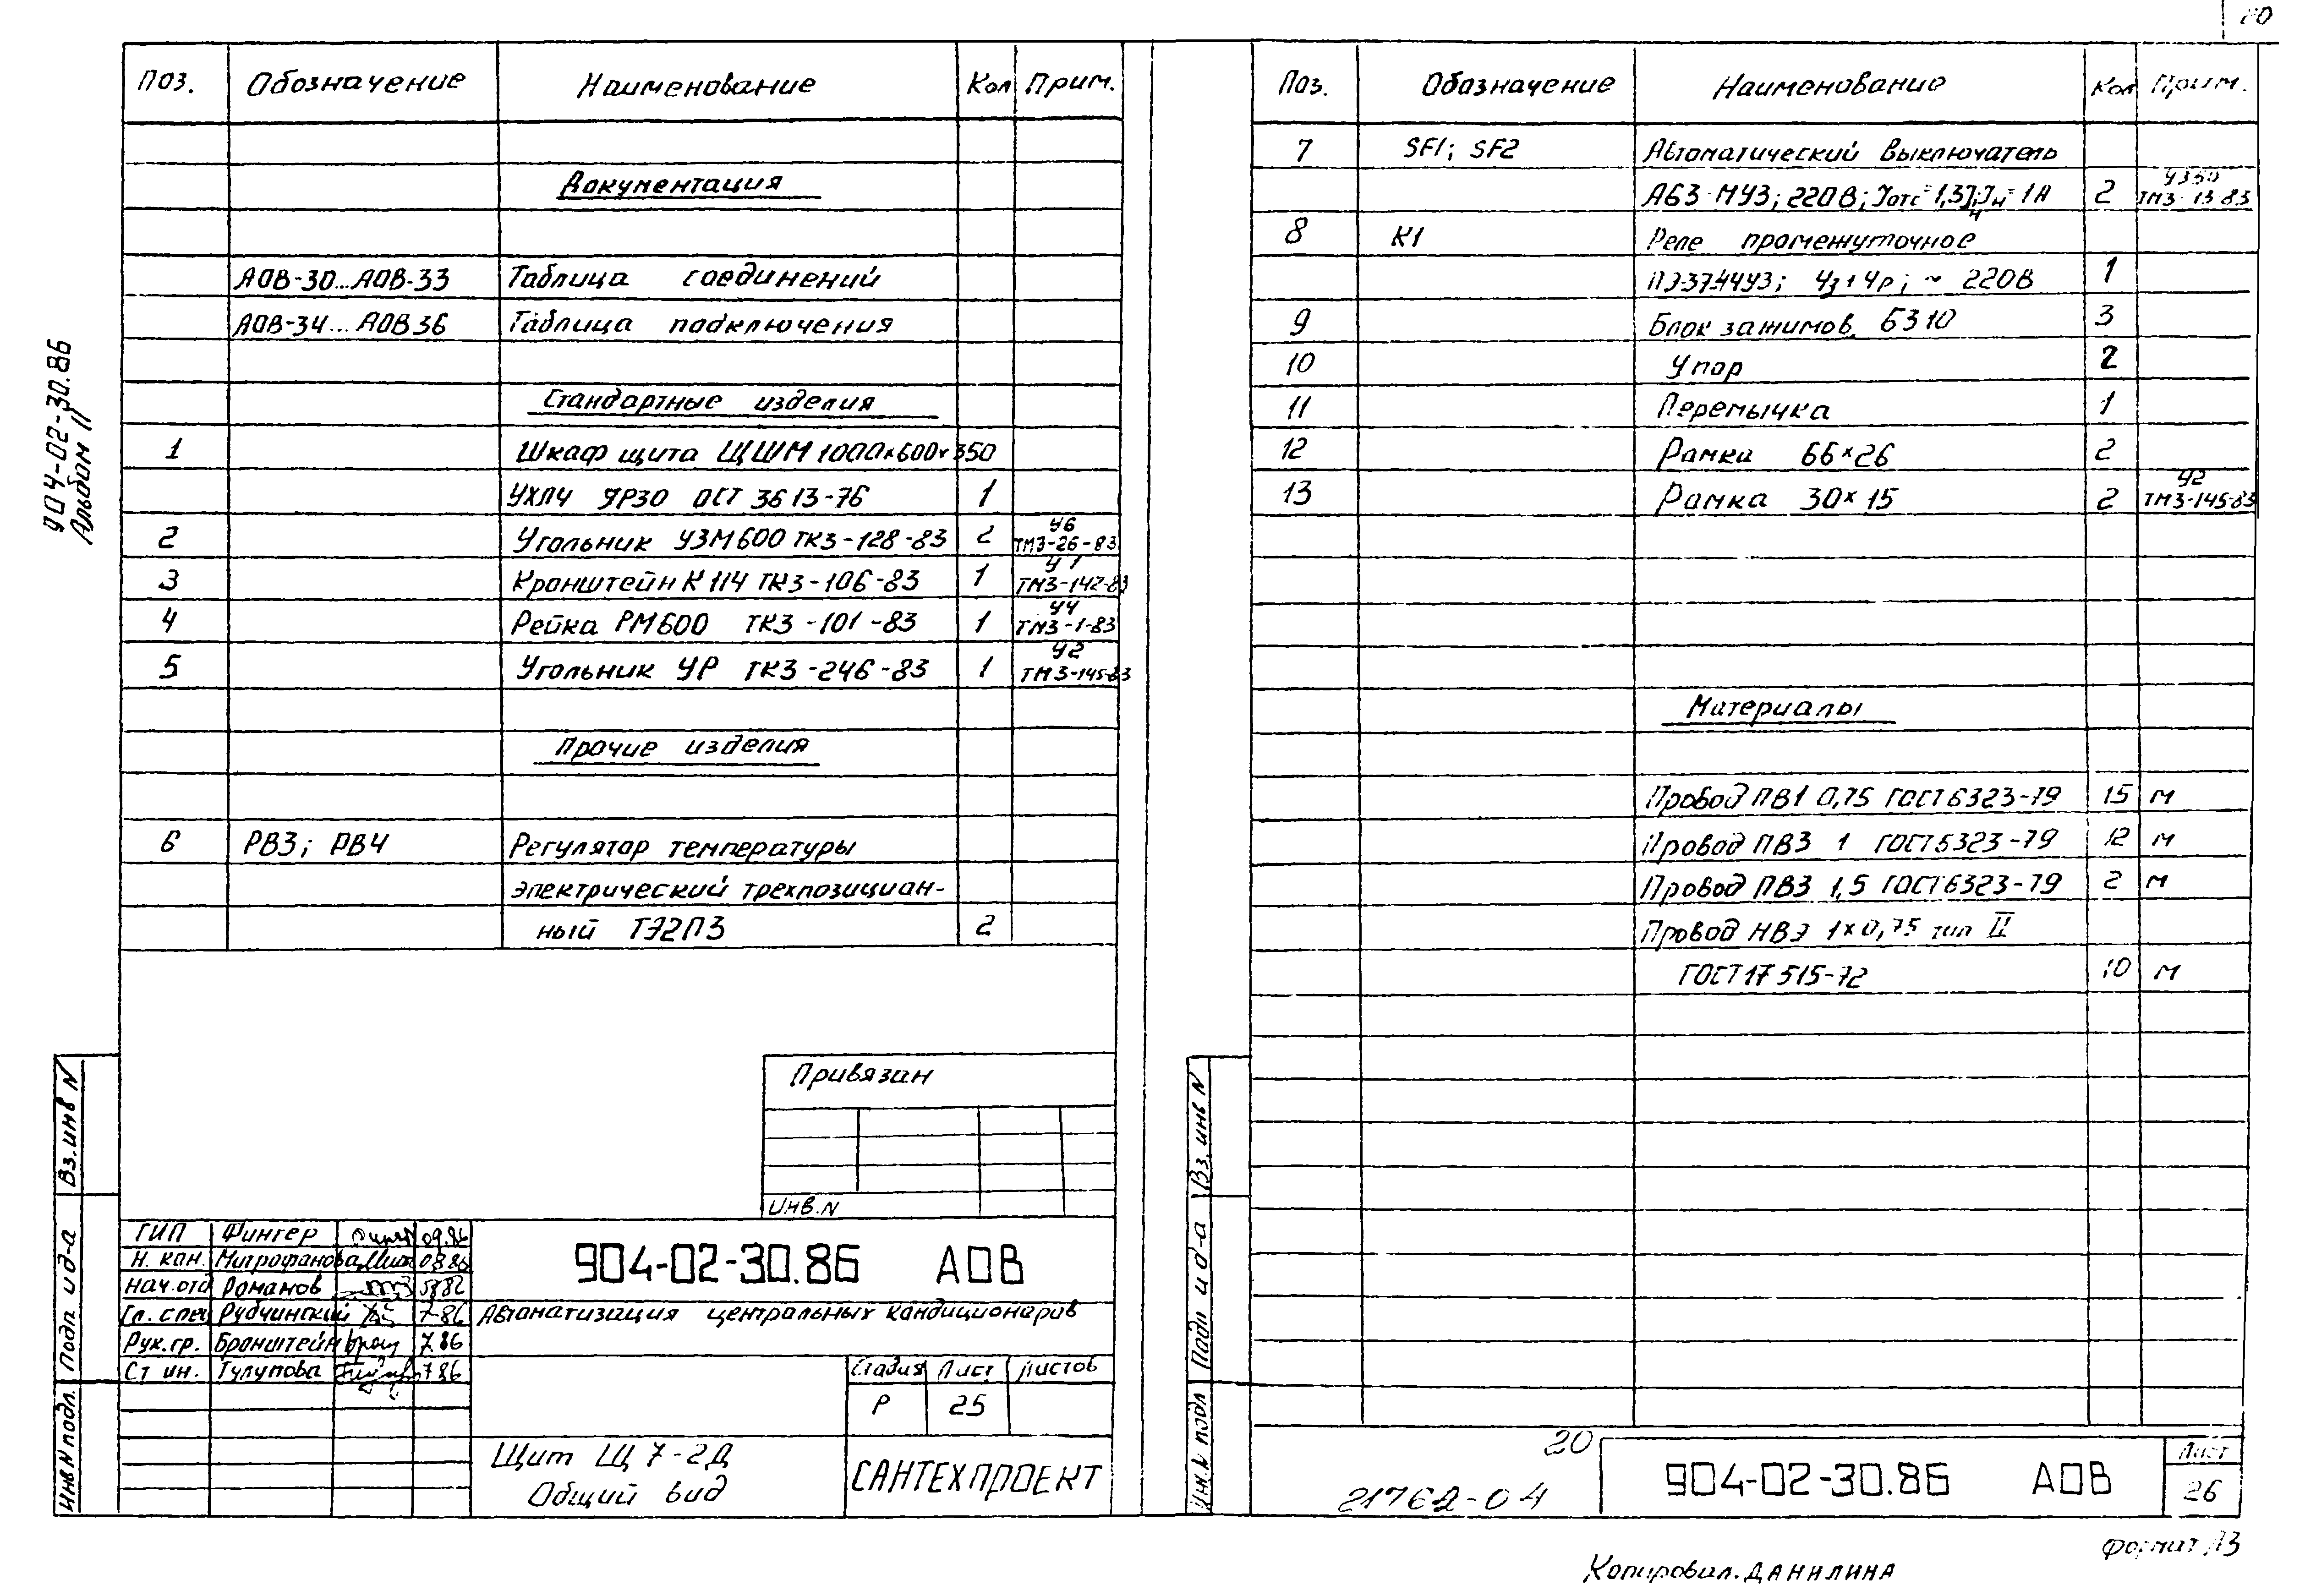 20
904-02-30.86
Альбом II
Поз. Обозначение Наименование Кол Прим.
Документация
АОВ-30...АОВ-33 Таблица соединений
АОВ-34...АОВ36 Таблица подключения
Стандартные изделия
1 Шкаф щита ЩШМ 1000х600х350
УХЛ4 УР30 ОСТ 36 13-76 1
2 Угольник УЗМ600 ТК3-128-83 2 У6 ТМ3-26-83
3 Кронштейн К114 ТК3-106-83 1 У1 ТМ3-142-83
4 Рейка РМ600 ТК3-101-83 1 У4 ТМ3-1-83
5 Угольник УР ТК3-246-83 1 У2 ТМ3-145-83
Прочие изделия
6 РВ3; РВ4 Регулятор температуры
электрический трехпозицион-
ный ТЭ2П3 2
Привязан
Инв.N
ГИП Фингер 09.86
Н. кон. Митрофанова 08.86
Нач.отд Романов
Гл. спец Рубчинский 7-86
Рук.гр. Бронштейн 7.86
Ст ин. Тулупова 7.86
904-02-30.86 АОВ
Автоматизация центральных кондиционеров
Стадия Лист Листов
Р 25
Щит Щ 7-2Д
Общий вид
САНТЕХПРОЕКТ
Вз.инв N
Подп и д-а
Инв N подл.
Поз. Обозначение Наименование Кол Прим.
7 SF1; SF2 Автоматический выключатель
А63-МУ3; 220В; Iотс=1,3Iн; Iн=1А 2 У350 ТМ3-13-83
8 К1 Реле промежуточное
ПЭ-37-44У3; 4з+4р; ~ 220В 1
9 Блок зажимов Б310 3
10 Упор 2
11 Перемычка 1
12 Рамка 66×26 2
13 Рамка 30×15 2 У2 ТМ3-145-83
Материалы
Провод ПВ1 0,75 ГОСТ 6323-79 15 м
Провод ПВ3 1 ГОСТ 6323-79 12 м
Провод ПВ3 1,5 ГОСТ 6323-79 2 м
Провод НВЭ 1×0,75 тип II
ГОСТ 17 515-72 10 м
Вз.инв N
Подп и д-а
Инв.N подл
20
21762-04
904-02-30.86 АОВ
Лист
26
Формат А3
Копировал.ДАНИЛИНА